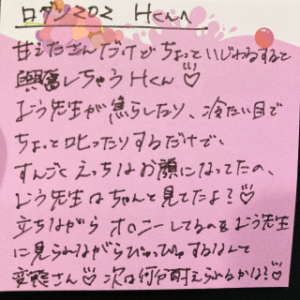 ロダン202 Hくんへ
甘えたさんだけどちょっといじわるすると
興奮しちゃうHくん♡
よう先生が焦らしたり、冷たい目で
ちょっと叱ったりするだけで、
すんごくえっちなお顔になってたの、
よう先生はちゃんと見てたよ?♡
立ちながらオ○ニーしてるのをよう先生
に見られながらぴゅっぴゅするなんて
変態さん♡次は何分耐えられるかな?♡